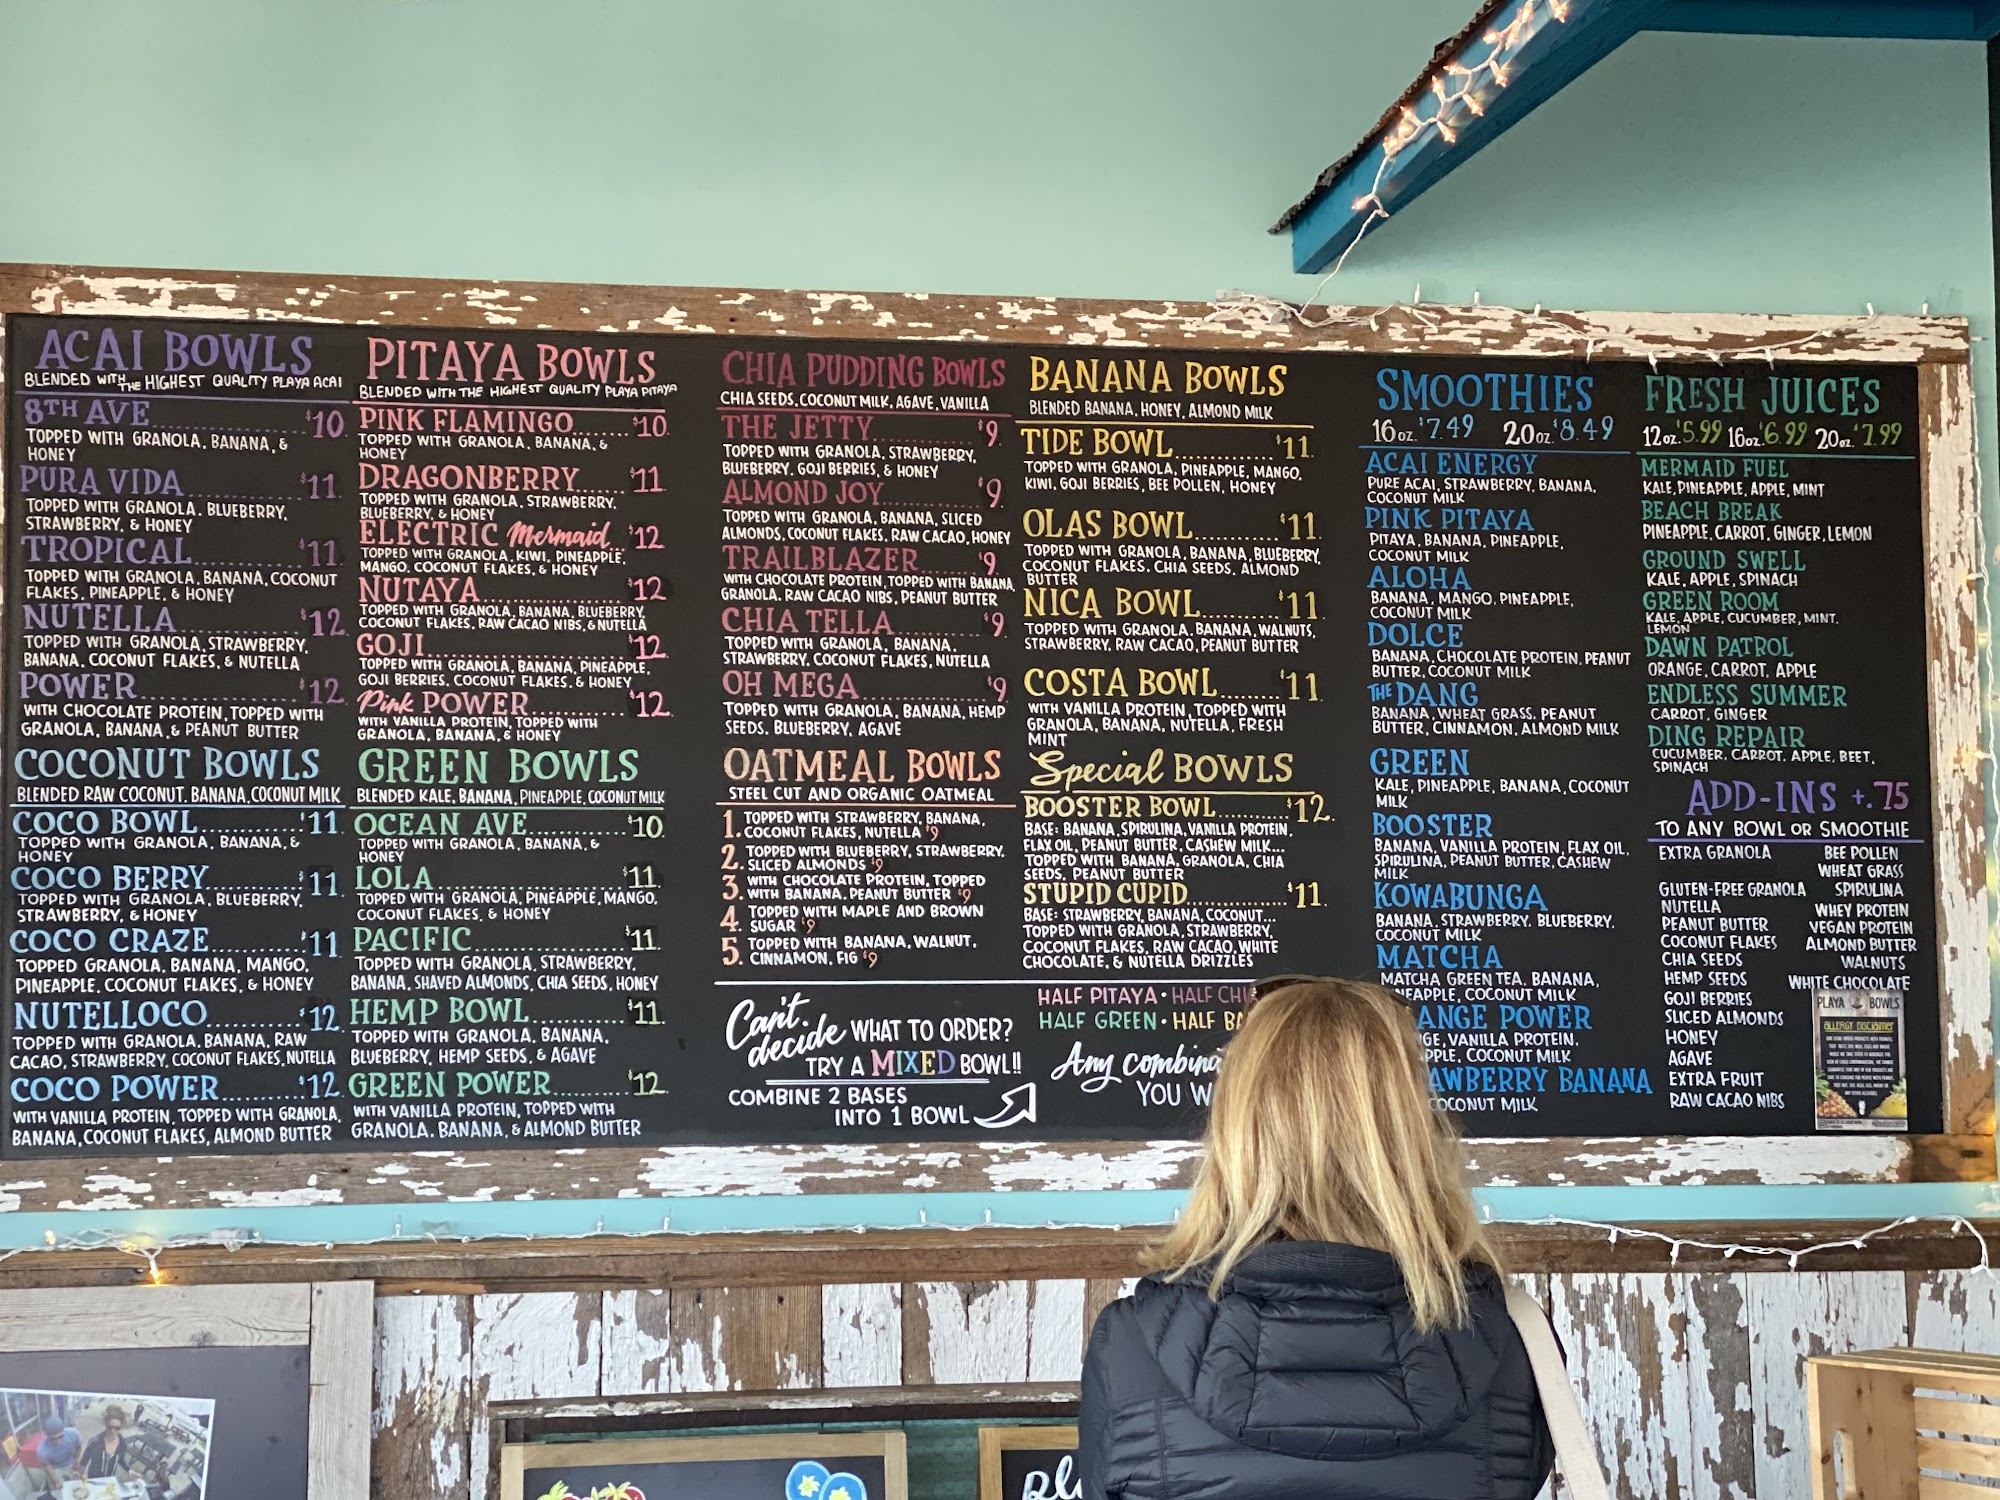 ACAI BOWLS
BLENDED WITH THE HIGHEST QUALITY PLAYA ACAI
8TH AVE $10
TOPPED WITH GRANOLA, BANANA, &
HONEY
PURA VIDA $11
TOPPED WITH GRANOLA, BLUEBERRY,
STRAWBERRY, & HONEY
TROPICAL $11
TOPPED WITH GRANOLA, BANANA, COCONUT
FLAKES, PINEAPPLE, & HONEY
NUTELLA $12
TOPPED WITH GRANOLA, STRAWBERRY,
BANANA, COCONUT FLAKES, & NUTELLA
POWER $12
WITH CHOCOLATE PROTEIN, TOPPED WITH
GRANOLA, BANANA, & PEANUT BUTTER
COCONUT BOWLS
BLENDED RAW COCONUT, BANANA, COCONUT MILK
COCO BOWL $11
TOPPED WITH GRANOLA, BANANA, &
HONEY
COCO BERRY $11
TOPPED WITH GRANOLA, BLUEBERRY,
STRAWBERRY, & HONEY
COCO CRAZE $11
TOPPED GRANOLA, BANANA, MANGO,
PINEAPPLE, COCONUT FLAKES, & HONEY
NUTELLOCO $12
TOPPED WITH GRANOLA, BANANA, RAW
CACAO, STRAWBERRY, COCONUT FLAKES, NUTELLA
COCO POWER $12
WITH VANILLA PROTEIN, TOPPED WITH GRANOLA,
BANANA, COCONUT FLAKES, ALMOND BUTTER
PITAYA BOWLS
BLENDED WITH THE HIGHEST QUALITY PLAYA PITAYA
PINK FLAMINGO $10
TOPPED WITH GRANOLA, BANANA, &
HONEY
DRAGONBERRY $11
TOPPED WITH GRANOLA, STRAWBERRY,
BLUEBERRY, & HONEY
ELECTRIC Mermaid $12
TOPPED WITH GRANOLA, KIWI, PINEAPPLE,
MANGO, COCONUT FLAKES, & HONEY
NUTAYA $12
TOPPED WITH GRANOLA, BANANA, BLUEBERRY,
COCONUT FLAKES, RAW CACAO NIBS, & NUTELLA
GOJI $12
TOPPED WITH GRANOLA, BANANA, PINEAPPLE,
GOJI BERRIES, COCONUT FLAKES, & HONEY
Pink POWER $12
WITH VANILLA PROTEIN, TOPPED WITH
GRANOLA, BANANA, & HONEY
GREEN BOWLS
BLENDED KALE, BANANA, PINEAPPLE, COCONUT MILK
OCEAN AVE $10
TOPPED WITH GRANOLA, BANANA, &
HONEY
LOLA $11
TOPPED WITH GRANOLA, PINEAPPLE, MANGO,
COCONUT FLAKES, & HONEY
PACIFIC $11
TOPPED WITH GRANOLA, STRAWBERRY,
BANANA, SHAVED ALMONDS, CHIA SEEDS, HONEY
HEMP BOWL $11
TOPPED WITH GRANOLA, BANANA,
BLUEBERRY, HEMP SEEDS, & AGAVE
GREEN POWER $12
WITH VANILLA PROTEIN, TOPPED WITH
GRANOLA, BANANA, & ALMOND BUTTER
CHIA PUDDING BOWLS
CHIA SEEDS, COCONUT MILK, AGAVE, VANILLA
THE JETTY $9
TOPPED WITH GRANOLA, STRAWBERRY,
BLUEBERRY, GOJI BERRIES, & HONEY
ALMOND JOY $9
TOPPED WITH GRANOLA, BANANA, SLICED
ALMONDS, COCONUT FLAKES, RAW CACAO, HONEY
TRAILBLAZER $9
WITH CHOCOLATE PROTEIN, TOPPED WITH BANANA,
GRANOLA, RAW CACAO NIBS, PEANUT BUTTER
CHIA TELLA $9
TOPPED WITH GRANOLA, BANANA,
STRAWBERRY, COCONUT FLAKES, NUTELLA
OH MEGA $9
TOPPED WITH GRANOLA, BANANA, HEMP
SEEDS, BLUEBERRY, AGAVE
OATMEAL BOWLS
STEEL CUT AND ORGANIC OATMEAL
1. TOPPED WITH STRAWBERRY, BANANA,
COCONUT FLAKES, NUTELLA $9
2. TOPPED WITH BLUEBERRY, STRAWBERRY,
SLICED ALMONDS $9
3. WITH CHOCOLATE PROTEIN, TOPPED
WITH BANANA, PEANUT BUTTER $9
4. TOPPED WITH MAPLE AND BROWN
SUGAR $9
5. TOPPED WITH BANANA, WALNUT,
CINNAMON, FIG $9
BANANA BOWLS
BLENDED BANANA, HONEY, ALMOND MILK
TIDE BOWL $11
TOPPED WITH GRANOLA, PINEAPPLE, MANGO,
KIWI, GOJI BERRIES, BEE POLLEN, HONEY
OLAS BOWL $11
TOPPED WITH GRANOLA, BANANA, BLUEBERRY,
COCONUT FLAKES, CHIA SEEDS, ALMOND
BUTTER
NICA BOWL $11
TOPPED WITH GRANOLA, BANANA, WALNUTS,
STRAWBERRY, RAW CACAO, PEANUT BUTTER
COSTA BOWL $11
WITH VANILLA PROTEIN, TOPPED WITH
GRANOLA, BANANA, NUTELLA, FRESH
MINT
Special BOWLS
BOOSTER BOWL $12
BASE: BANANA, SPIRULINA, VANILLA PROTEIN,
FLAX OIL, PEANUT BUTTER, CASHEW MILK...
TOPPED WITH BANANA, GRANOLA, CHIA
SEEDS, PEANUT BUTTER
STUPID CUPID $11
BASE: STRAWBERRY, BANANA, COCONUT...
TOPPED WITH GRANOLA, STRAWBERRY,
COCONUT FLAKES, RAW CACAO, WHITE
CHOCOLATE, & NUTELLA DRIZZLES
Can't decide WHAT TO ORDER?
TRY A MIXED BOWL!!
COMBINE 2 BASES
INTO 1 BOWL
HALF PITAYA • HALF CHI
HALF GREEN • HALF BA
Any combina
YOU W
SMOOTHIES
16 OZ. $7.49 20 OZ. $8.49
ACAI ENERGY
PURE ACAI, STRAWBERRY, BANANA,
COCONUT MILK
PINK PITAYA
PITAYA, BANANA, PINEAPPLE,
COCONUT MILK
ALOHA
BANANA, MANGO, PINEAPPLE,
COCONUT MILK
DOLCE
BANANA, CHOCOLATE PROTEIN, PEANUT
BUTTER, COCONUT MILK
THE DANG
BANANA, WHEAT GRASS, PEANUT
BUTTER, CINNAMON, ALMOND MILK
GREEN
KALE, PINEAPPLE, BANANA, COCONUT
MILK
BOOSTER
BANANA, VANILLA PROTEIN, FLAX OIL,
SPIRULINA, PEANUT BUTTER, CASHEW
MILK
KOWABUNGA
BANANA, STRAWBERRY, BLUEBERRY,
COCONUT MILK
MATCHA
MATCHA GREEN TEA, BANANA,
NEAPPLE, COCONUT MILK
ANGE POWER
GE, VANILLA PROTEIN,
PPLE, COCONUT MILK
AWBERRY BANANA
COCONUT MILK
FRESH JUICES
12 OZ. $5.99 16 OZ. $6.99 20 OZ. $7.99
MERMAID FUEL
KALE, PINEAPPLE, APPLE, MINT
BEACH BREAK
PINEAPPLE, CARROT, GINGER, LEMON
GROUND SWELL
KALE, APPLE, SPINACH
GREEN ROOM
KALE, APPLE, CUCUMBER, MINT,
LEMON
DAWN PATROL
ORANGE, CARROT, APPLE
ENDLESS SUMMER
CARROT, GINGER
DING REPAIR
CUCUMBER, CARROT, APPLE, BEET,
SPINACH
ADD-INS +.75
TO ANY BOWL OR SMOOTHIE
EXTRA GRANOLA
GLUTEN-FREE GRANOLA
NUTELLA
PEANUT BUTTER
COCONUT FLAKES
CHIA SEEDS
HEMP SEEDS
GOJI BERRIES
SLICED ALMONDS
HONEY
AGAVE
EXTRA FRUIT
RAW CACAO NIBS
BEE POLLEN
WHEAT GRASS
SPIRULINA
WHEY PROTEIN
VEGAN PROTEIN
ALMOND BUTTER
WALNUTS
WHITE CHOCOLATE
PLAYA BOWLS
ALLERGY DISCLAIMER